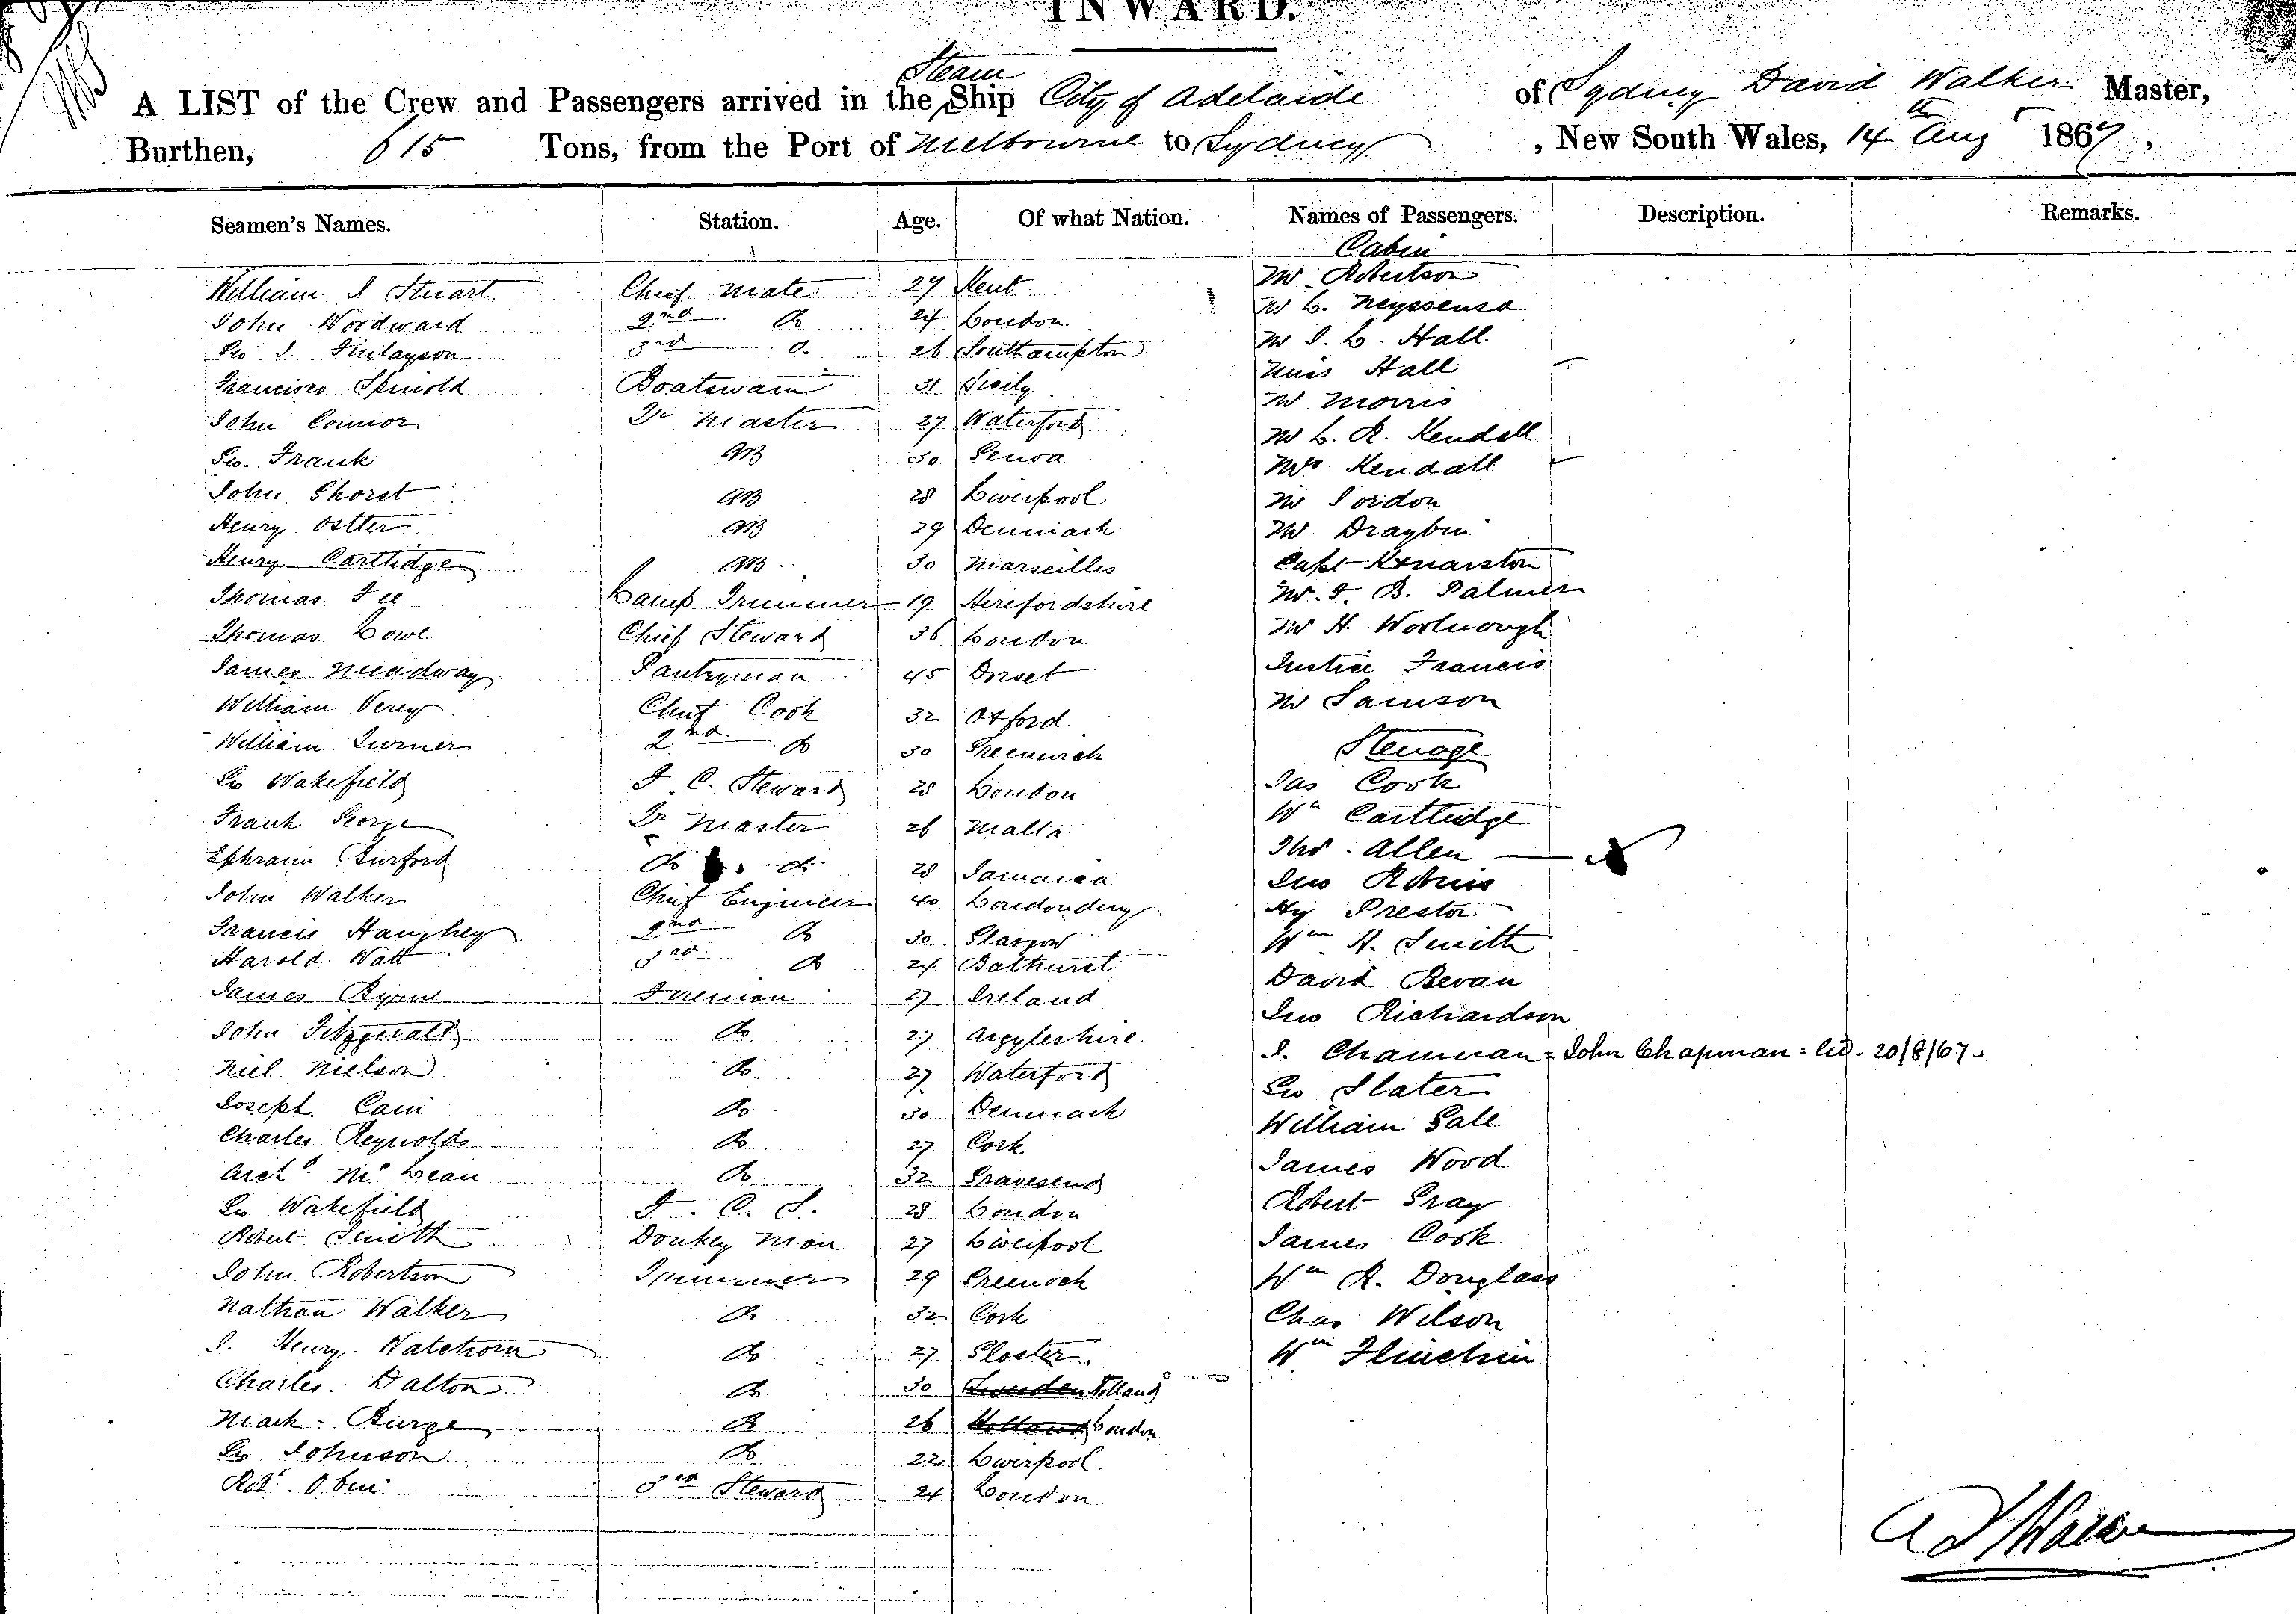 INWARD.
A LIST of the Crew and Passengers arrived in the Steam Ship City of Adelaide of Sydney David Walker Master,
Burthen, 615 Tons, from the Port of Melbourne to Sydney, New South Wales, 14th Aug 1867,
Seamen's Names. Station. Age. Of what Nation. Names of Passengers. Description. Remarks.
Cabin
William J Stuart Chief Mate 29 Kent Mr Robertson
John Woodward 2nd Do 24 London Mr L.
Geo J. Finlayson 3rd Do 26 Southampton Mr J. L. Hall
Francisco Boatswain 31 Sicily Miss Hall
John Connor Qr Master 27 Waterford Mr Morris
Geo Frank AB 30 Genoa Mr L. R. Kendall
John Ghorst AB 28 Liverpool Mrs Kendall
Henry Ostler AB 29 Denmark Mr Gordon
Henry Cartlidge AB 30 Marseilles Mr Draybin
Thomas Fee Lamp Trimmer 19 Herefordshire Capt
Thomas Lewe Chief Steward 36 London Mr F. B. Palmer
James Meadway Pantryman 45 Dorset Mr H. Woolnough
William Verey Chief Cook 32 Oxford Justice Francis
William Turner 2nd Do 30 Greenwich Mr Samson
Steerage
Geo Wakefield F. C. Steward 28 London Jas Cook
Frank George Qr Master 26 Malta Wm Cartlidge
Ephraim Burford Do Do 28 Jamaica Thos. Allen
John Walker Chief Engineer 40 Londonderry Jno
Francis Haughey 2nd Do 30 Glasgow Hy Preston
Harold Watt 3rd Do 24 Bathurst Wm H. Smith
James Byrne Fireman 27 Ireland David Bevan
John Fitzgerald Do 27 Argyleshire Jno Richardson
Niel Nielson Do 27 Waterford J. Chamman = John Chapman = 20/8/67
Joseph Cain Do 30 Denmark Geo Slater
Charles Reynolds Do 27 Cork William Gale
Archd McLean Do 32 Gravesend James Wood
Geo Wakefield F. C. S. 28 London Robert Gray
Robert Smith Donkey Man 27 Liverpool James Cook
John Robertson Trimmer 29 Greenock Wm R. Douglass
Nathan Walker Do 32 Cork Chas Wilson
J. Henry Watchorn Do 27 Gloster Wm Flinchin
Charles Dalton Do 30 Holland
Mark Burge Do 26 Holland London
Geo Johnson Do 22 Liverpool
Robt. Obin 3rd Steward 24 London